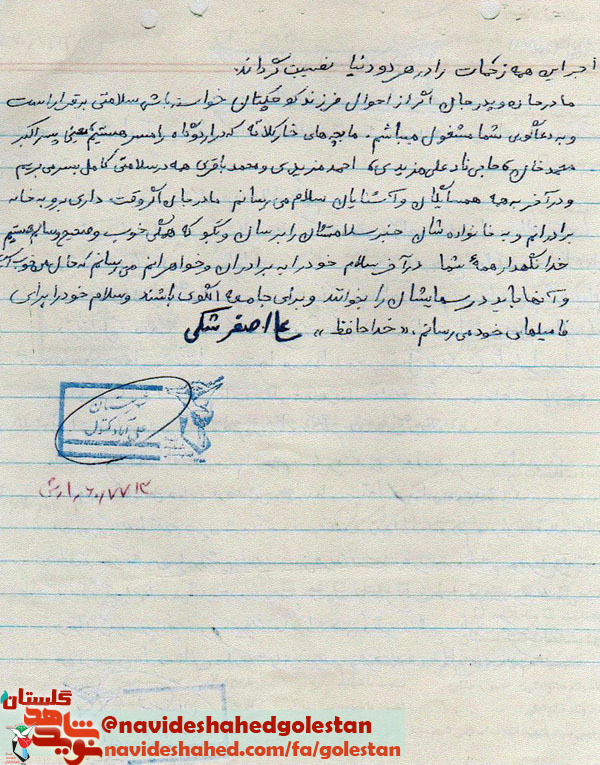 اجر این همه زحمات را در هر دو دنیا نصیب گرداند.
مادر جان و پدر جان اگر از احوال فرزند کوچکتان خواسته باشید سلامتی برقرار است
و به دعاگوئی شما مشغول میباشم. ما بچه‌های خارکلاته که در اردوگاه رامسر هستیم، یعنی پسر اکبر
محمد خان، حاجی ناد علی مزیدی، احمد مزیدی و محمد باقری همه در سلامتی کامل بسر می‌بریم
و در آخر به همه همسایگان و آشنایان سلام می رسانم مادر جان اگر وقت داری برو به خانه
برادرانم و به خانواده شان خبر سلامتشان را برسان و بگو که همگی خوب و صحیح و سالم هستیم
خدا نگهدار همهٔ شما در آخر سلام خود را به برادران و خواهرانم می رسانم که حال من خوب است
و آنها باید درسهایشان را بخوانند و برای جامعه الگوی باشند و سلام خود را برای
فامیلهای خود می رسانم. «خدا حافظ» علی اصغر شکی
علی آباد کتول
گلستان
نوید شاهد
@navideshahedgolestan
navideshahed.com/fa/golestan